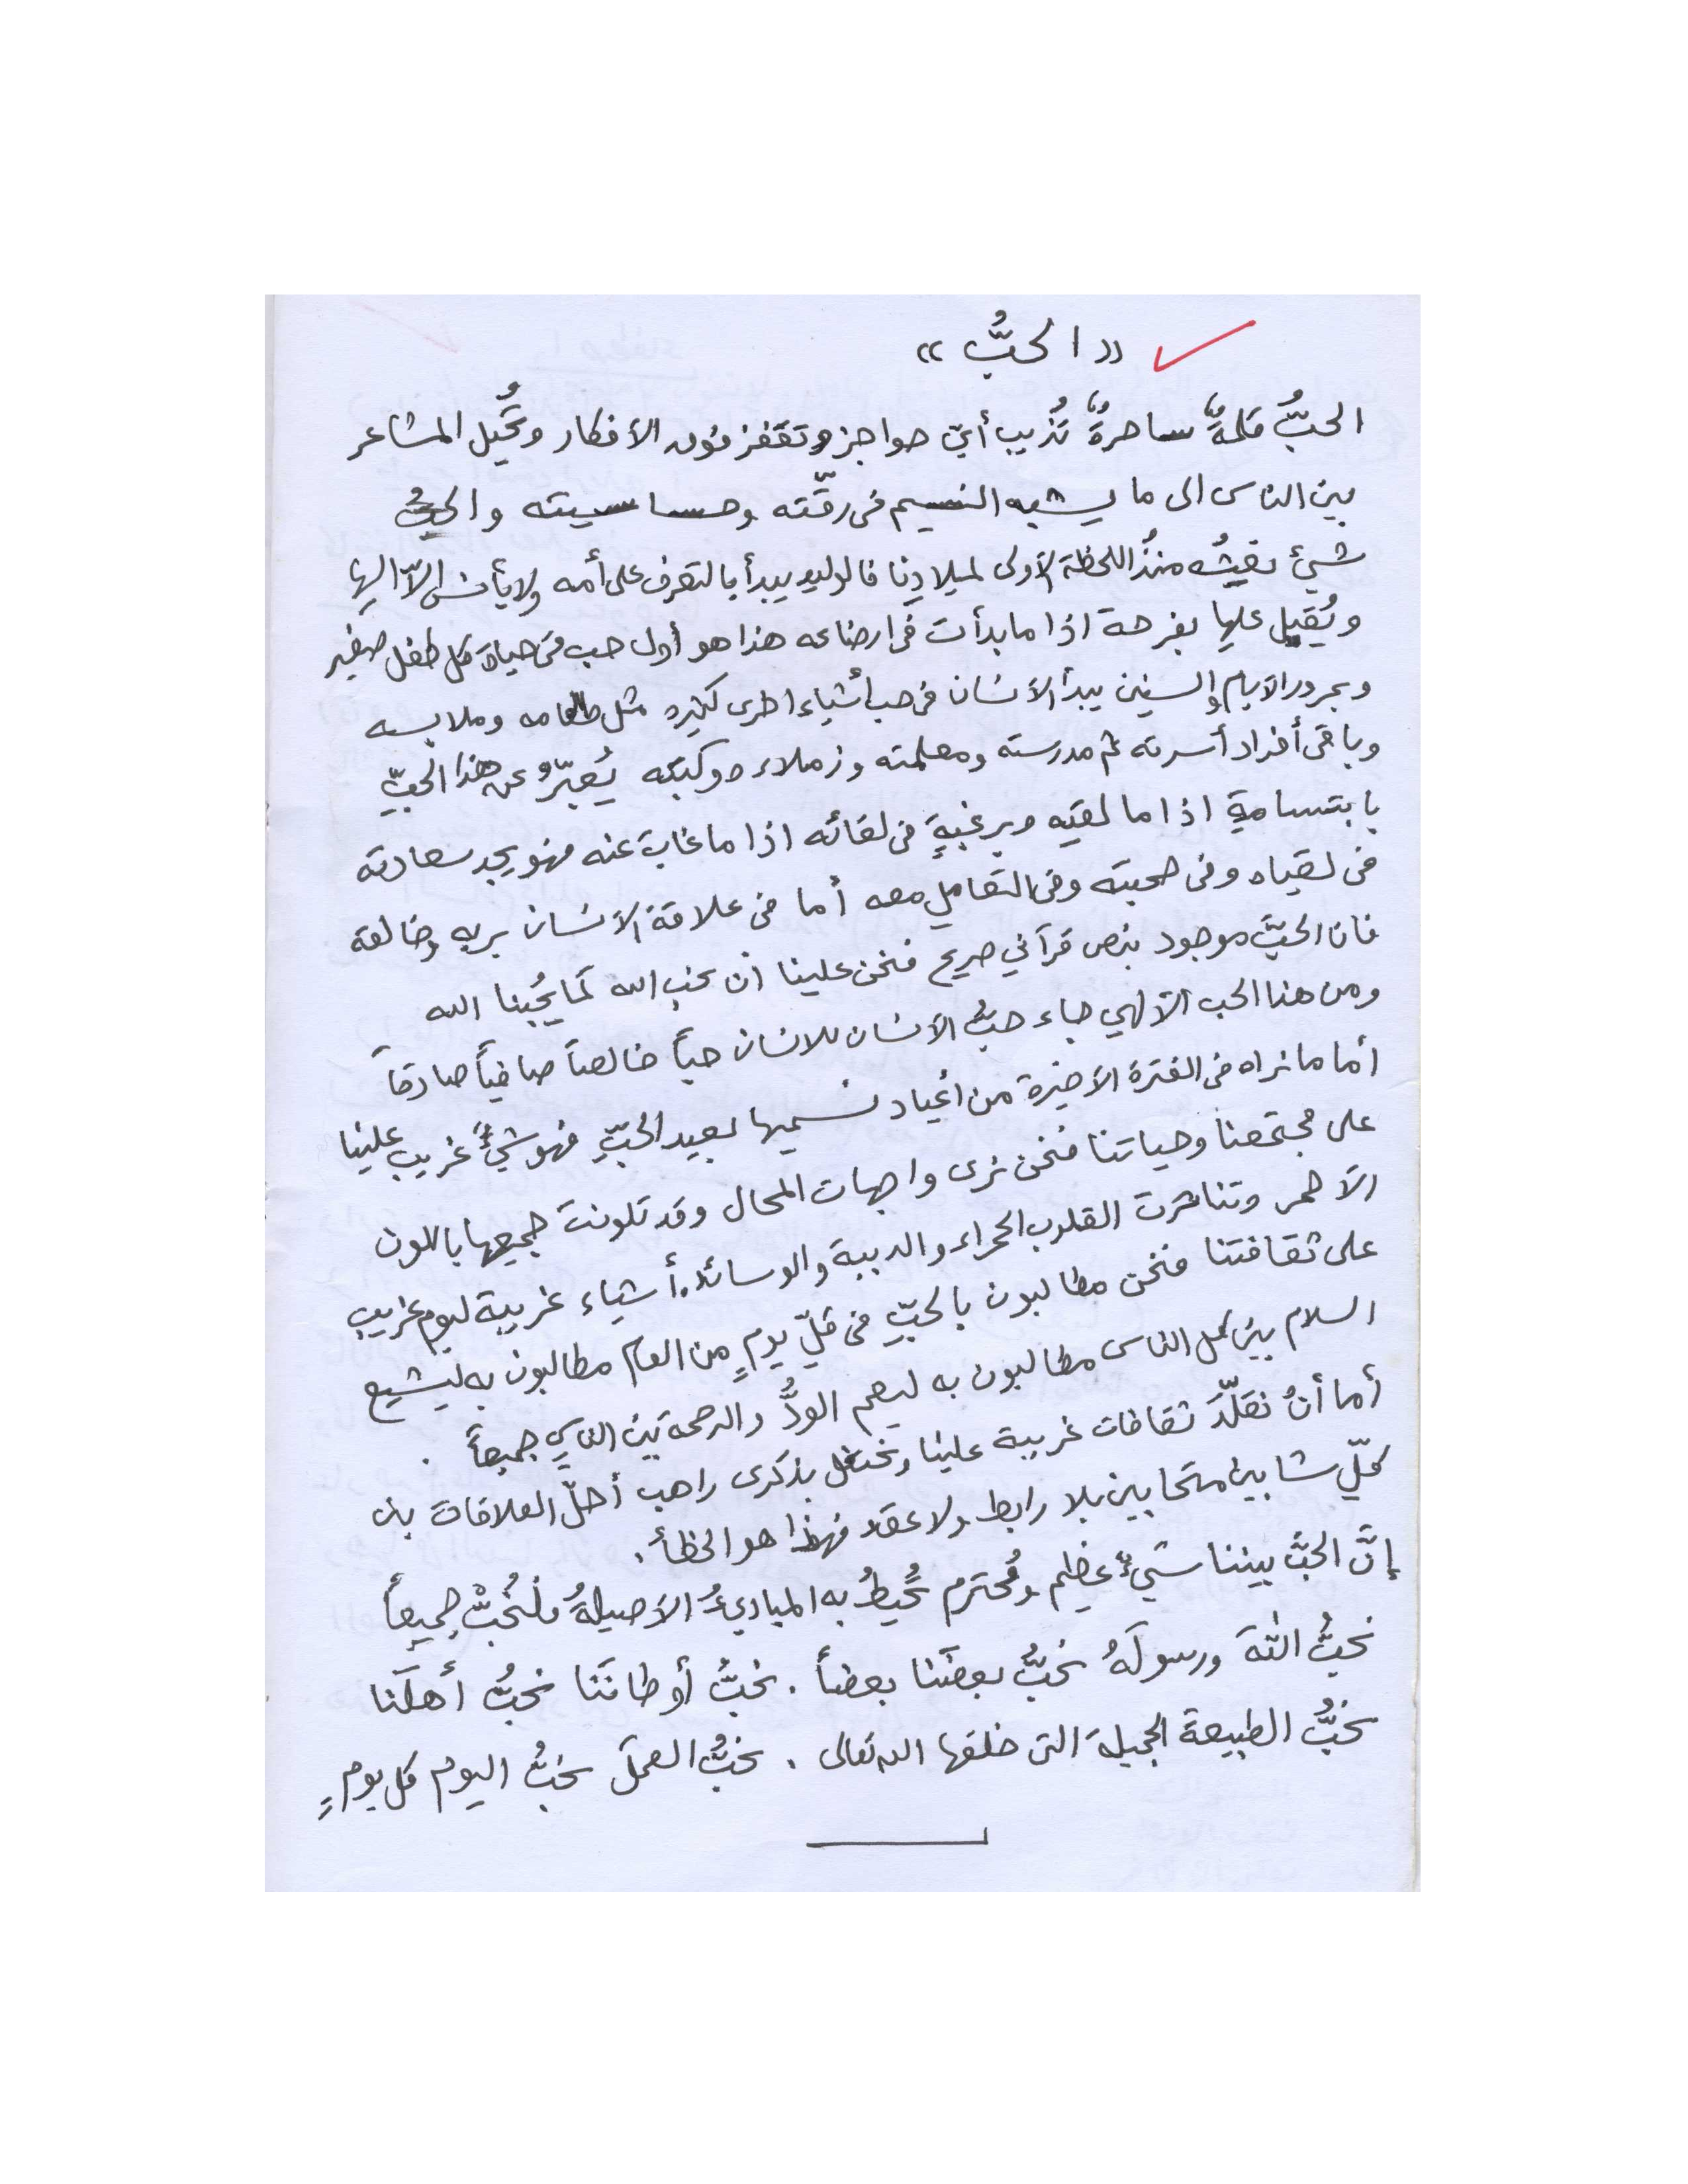 « الحبُّ »
الحبُّ كلمةٌ ساحرةٌ تُذيب أيّ حواجز وتقفز فوق الأفكار وتُحيل المشاعر
بين الناس الى ما يشبه النسيم فى رقّته وحساسيته والحبُّ
شيئ نعيشُه منذُ اللحظة الأولى لميلادِنا فالوليد يبدأ بالتعرف على أمه ولا يأنس الاّ اليها
ويُقبل عليها بفرحة اذا ما بدأت فى ارضاعه هذا هو أول حب فى حياة كل طفل صغير
وبمرور الأيام والسنين يبدأ الأنسان فى حب أشياء اخرى كثيره مثل طعامه وملابسه
وباقى أفراد أسرته ثم مدرسته ومعلمته وزملاءه وكتبه يُعبّرُ عن هذا الحبِّ
بابتسامةٍ اذا ما لقيه وبرغبةٍ فى لقائه اذا ما غاب عنه فهو يجد سعادته
فى لقياه وفى صحبته وفى التعاملِ معه أما فى علاقة الأنسان بربه وخالقه
فان الحبَّ موجود بنص قرآني صريح فنحن علينا أن نحب الله كما يُحبنا الله
ومن هذا الحب الألهي جاء حبُّ الأنسان للانسان حباً خالصاً صافياً صادقاً
أما ما نراه فى الفترة الأخيرة من أعياد نسميها بعيد الحبِّ فهو شيءٌ غريب علينا
على مجتمعنا وحياتنا فنحن نرى واجهات المحال وقد تلونت جميعها باللون
الأحمر وتناثرت القلوب الحمراء والدببة والوسائد. أشياء غريبة ليوم غريب
على ثقافتنا فنحن مطالبون بالحبِّ فى كلِّ يومٍ من العام مطالبون به ليشيع
السلام بين كل الناس مطالبون به ليعم الودُّ والرحمة بين الناسِ جميعاً .
أما أنْ نقلّدَ ثقافات غريبة علينا ونحتفل بذكرى راهب أحلّ العلاقات بين
كلّ شابين متحابين بلا رابط ولا عقد فهذا هو الخطأ.
إنَّ الحبَّ بيننا شيءٌ عظيم ومُحترم تُحيطُ به المبادئُ الأصيلةُ فلنُحبَّ جميعاً
نحبُّ اللهَ ورسولَهُ نحبُّ بعضَنا بعضاً . نحبُّ أوطانَنا نحبُّ أهلَنا
نحبُّ الطبيعة الجميلة التى خلقها الله تعالى . نحبُّ العملَ نحبُّ اليوم كل يومٍ